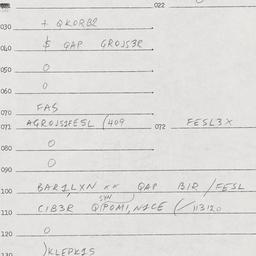 022
030 + QKORB2
040 $ QAP GROJS3R
050 0
060 0
FAS
070
071 AGROJS1FESL (409 072 FESL3X
080 0
090 0
100 BAR1,LXN ** QAP BIR / FESL
SYN
110 C1B3R Q(POMI,N1CE (/113120
120 0
130 )KLEPK1S